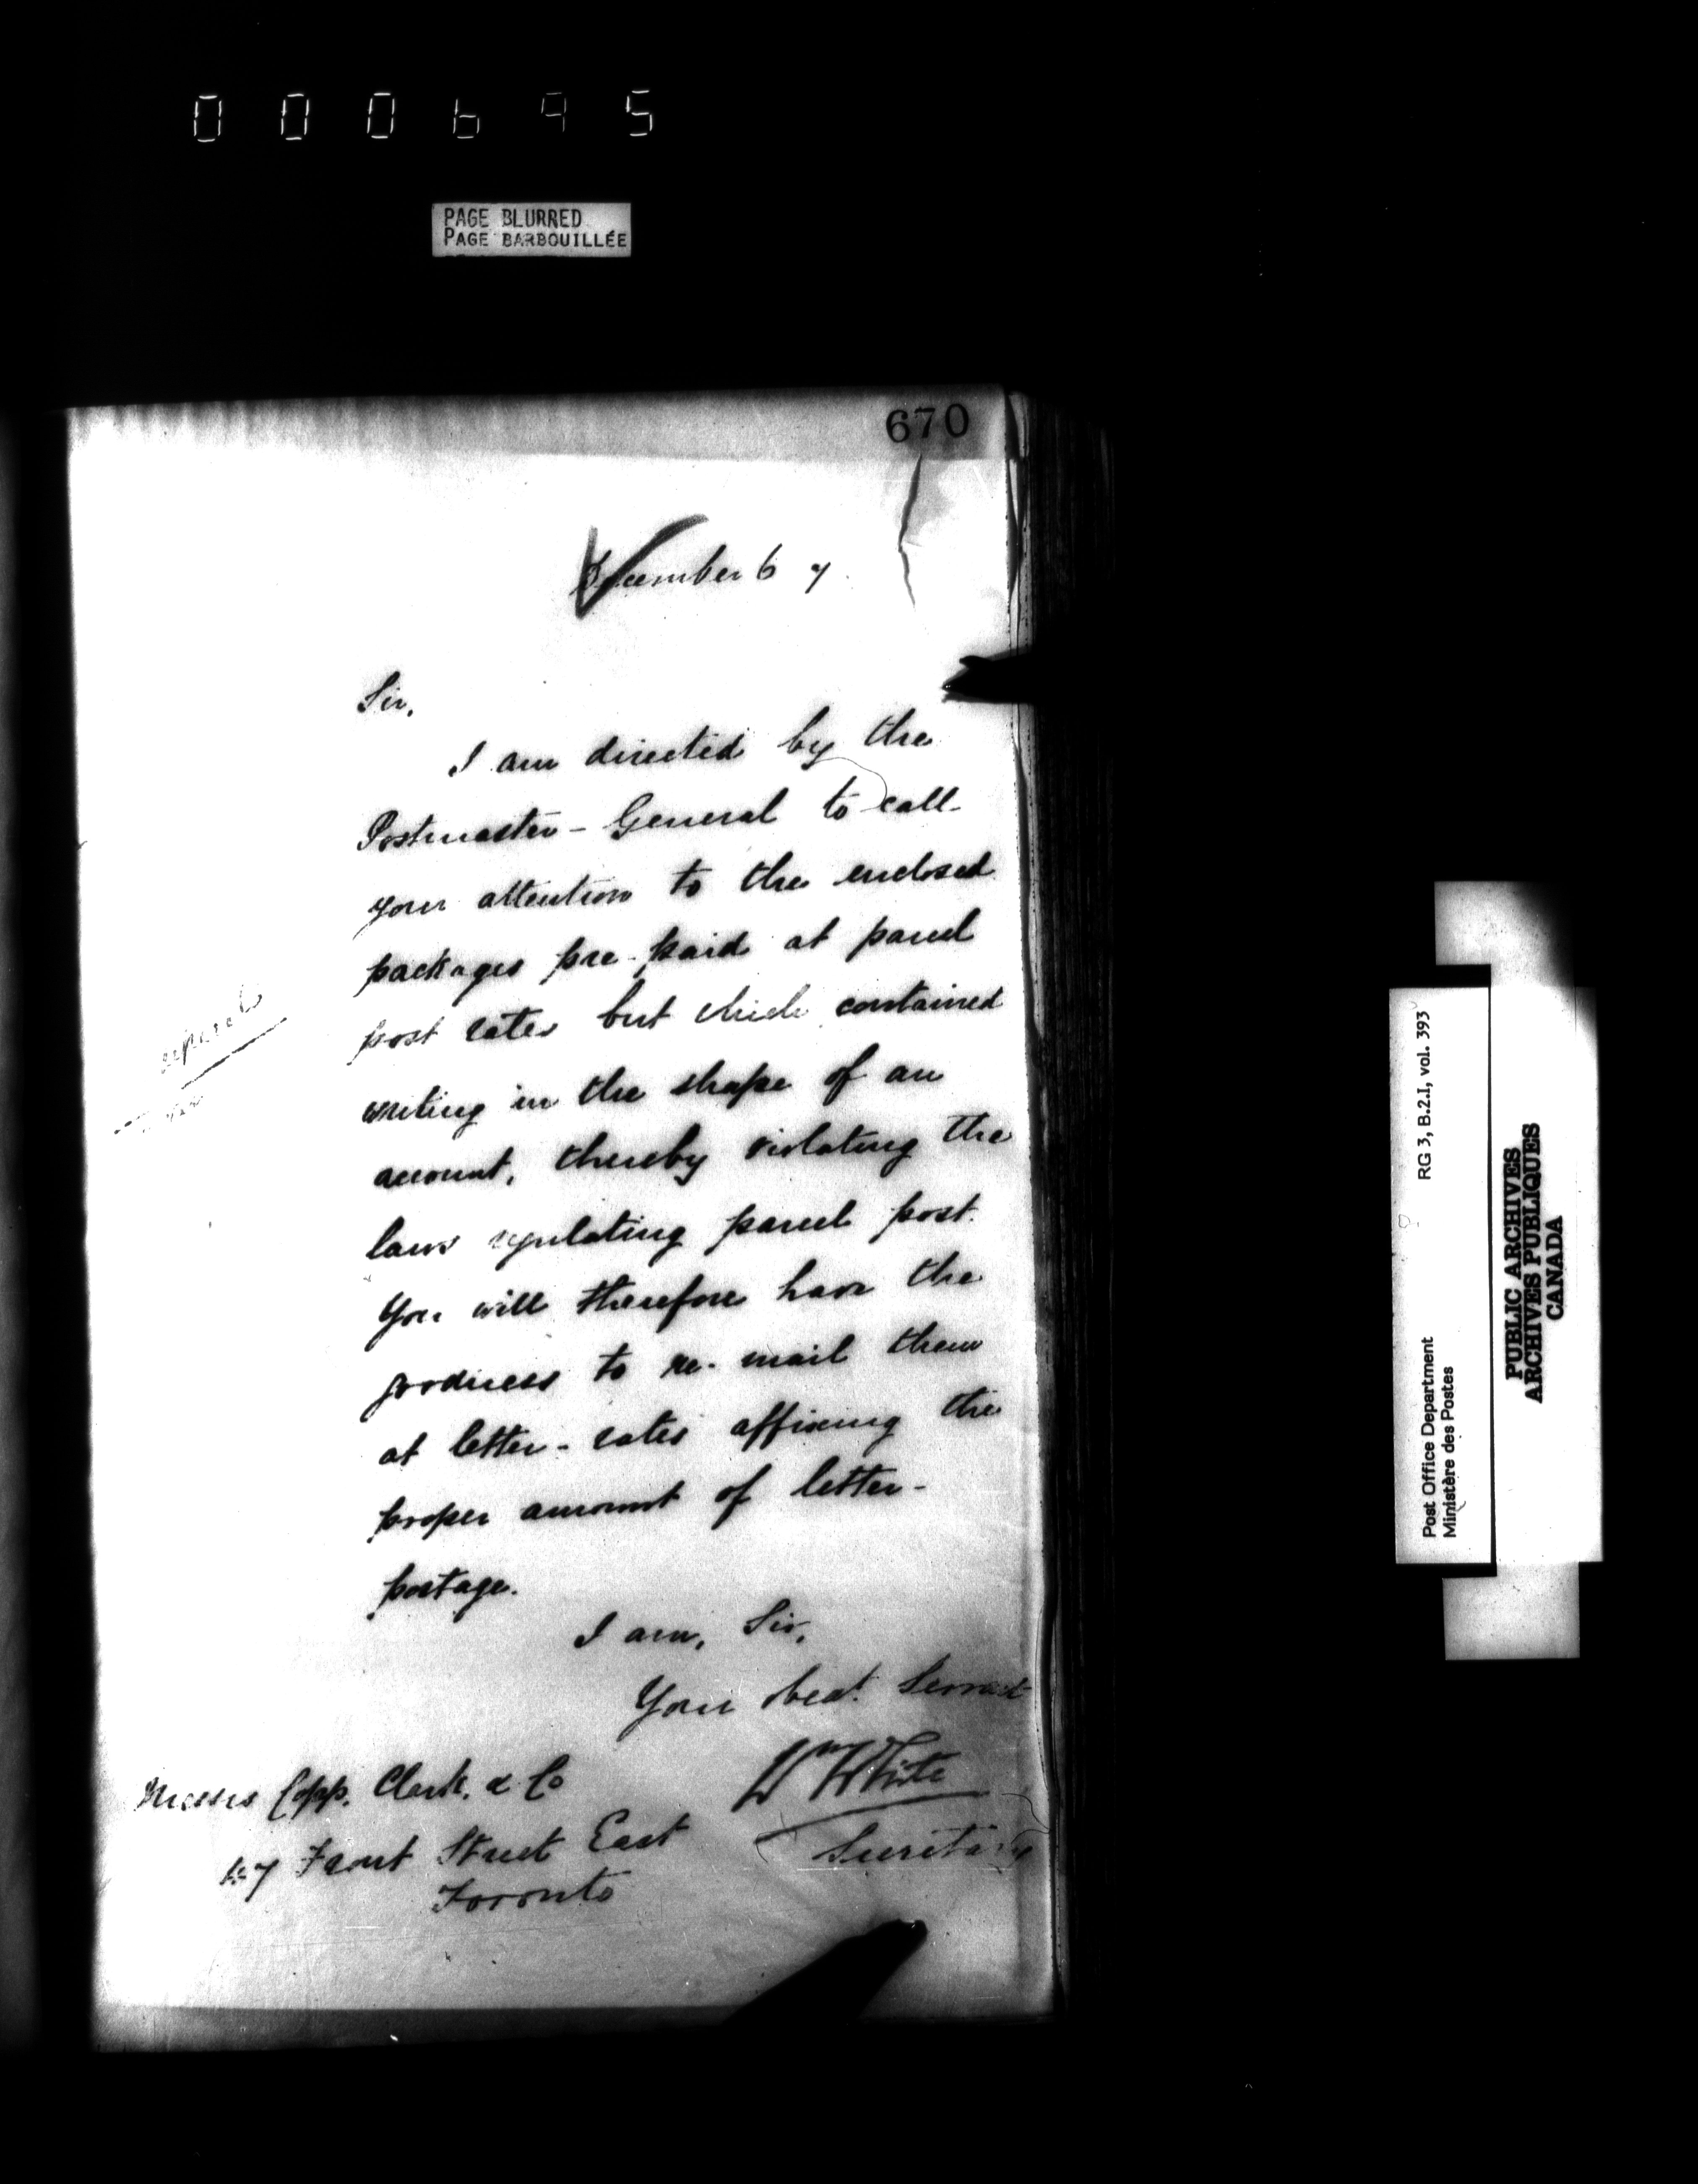 000695
PAGE BLURRED
PAGE BARBOUILLÉE
670
December 6 7
Sir,
I am directed by the
Postmaster-General to call
your attention to the enclosed
packages pre-paid at parcel
post rates but which contained
writing in the shape of an
account, thereby violating the
laws regulating parcel post.
You will therefore have the
goodness to re-mail them
at letter-rates affixing the
proper amount of letter-
postage.
I am, Sir,
Your obedt. Servant
Wm White
Secretary
Messrs Copp, Clark, & Co
Front Street East
Toronto
RG 3, B.2.I, vol. 393
Post Office Department
Ministère des Postes
PUBLIC ARCHIVES
ARCHIVES PUBLIQUES
CANADA